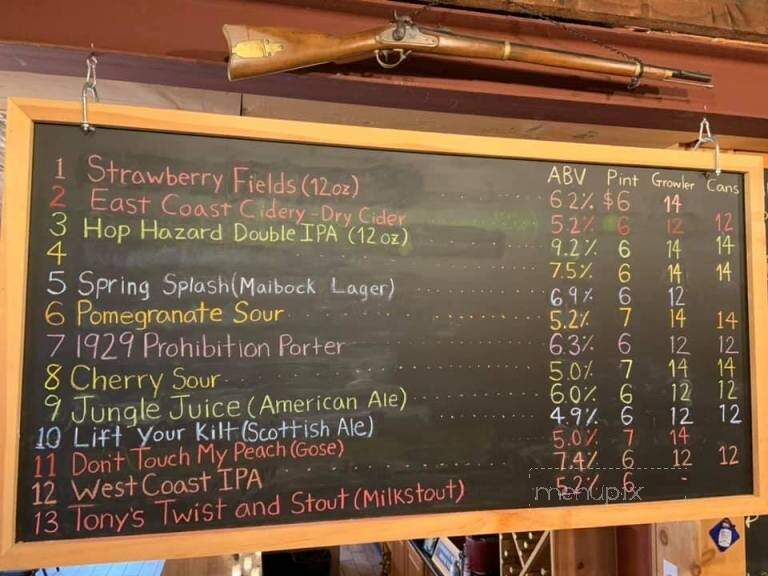 ABV Pint Growler Cans
1 Strawberry Fields (12oz) 6.2% $6 14
2 East Coast Cidery - Dry Cider 5.2% 6 12 12
3 Hop Hazard Double IPA (12oz) 9.2% 6 14 14
4 7.5% 6 14 14
5 Spring Splash (Maibock Lager) 6.9% 6 12
6 Pomegranate Sour 5.2% 7 14 14
7 1929 Prohibition Porter 6.3% 6 12 12
8 Cherry Sour 5.0% 7 14 14
9 Jungle Juice (American Ale) 6.0% 6 12 12
10 Lift Your Kilt (Scottish Ale) 4.9% 6 12 12
11 Don't Touch My Peach (Gose) 5.0% 7 14
12 West Coast IPA 7.4% 6 12 12
13 Tony's Twist and Stout (Milkstout) 5.2% 6 -
menupix